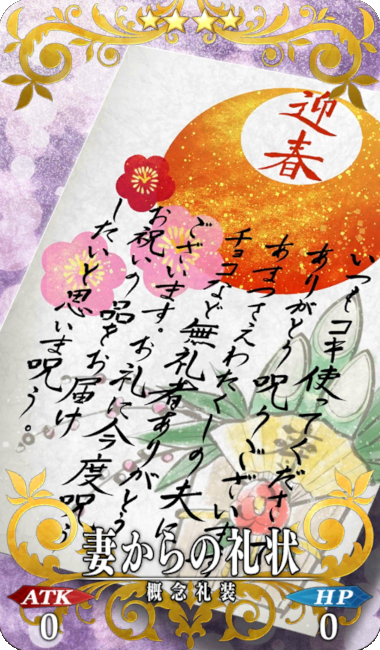 迎春
いつもコキ使ってくださって
ありがとう呪うございます
あまつさえわたくしの夫に
チョコなど無礼者ありがとう
ございます。お礼に今度呪う
お祝いの品をお届け
したいと思いま呪う。
妻からの礼状
概念礼装
ATK
0
HP
0